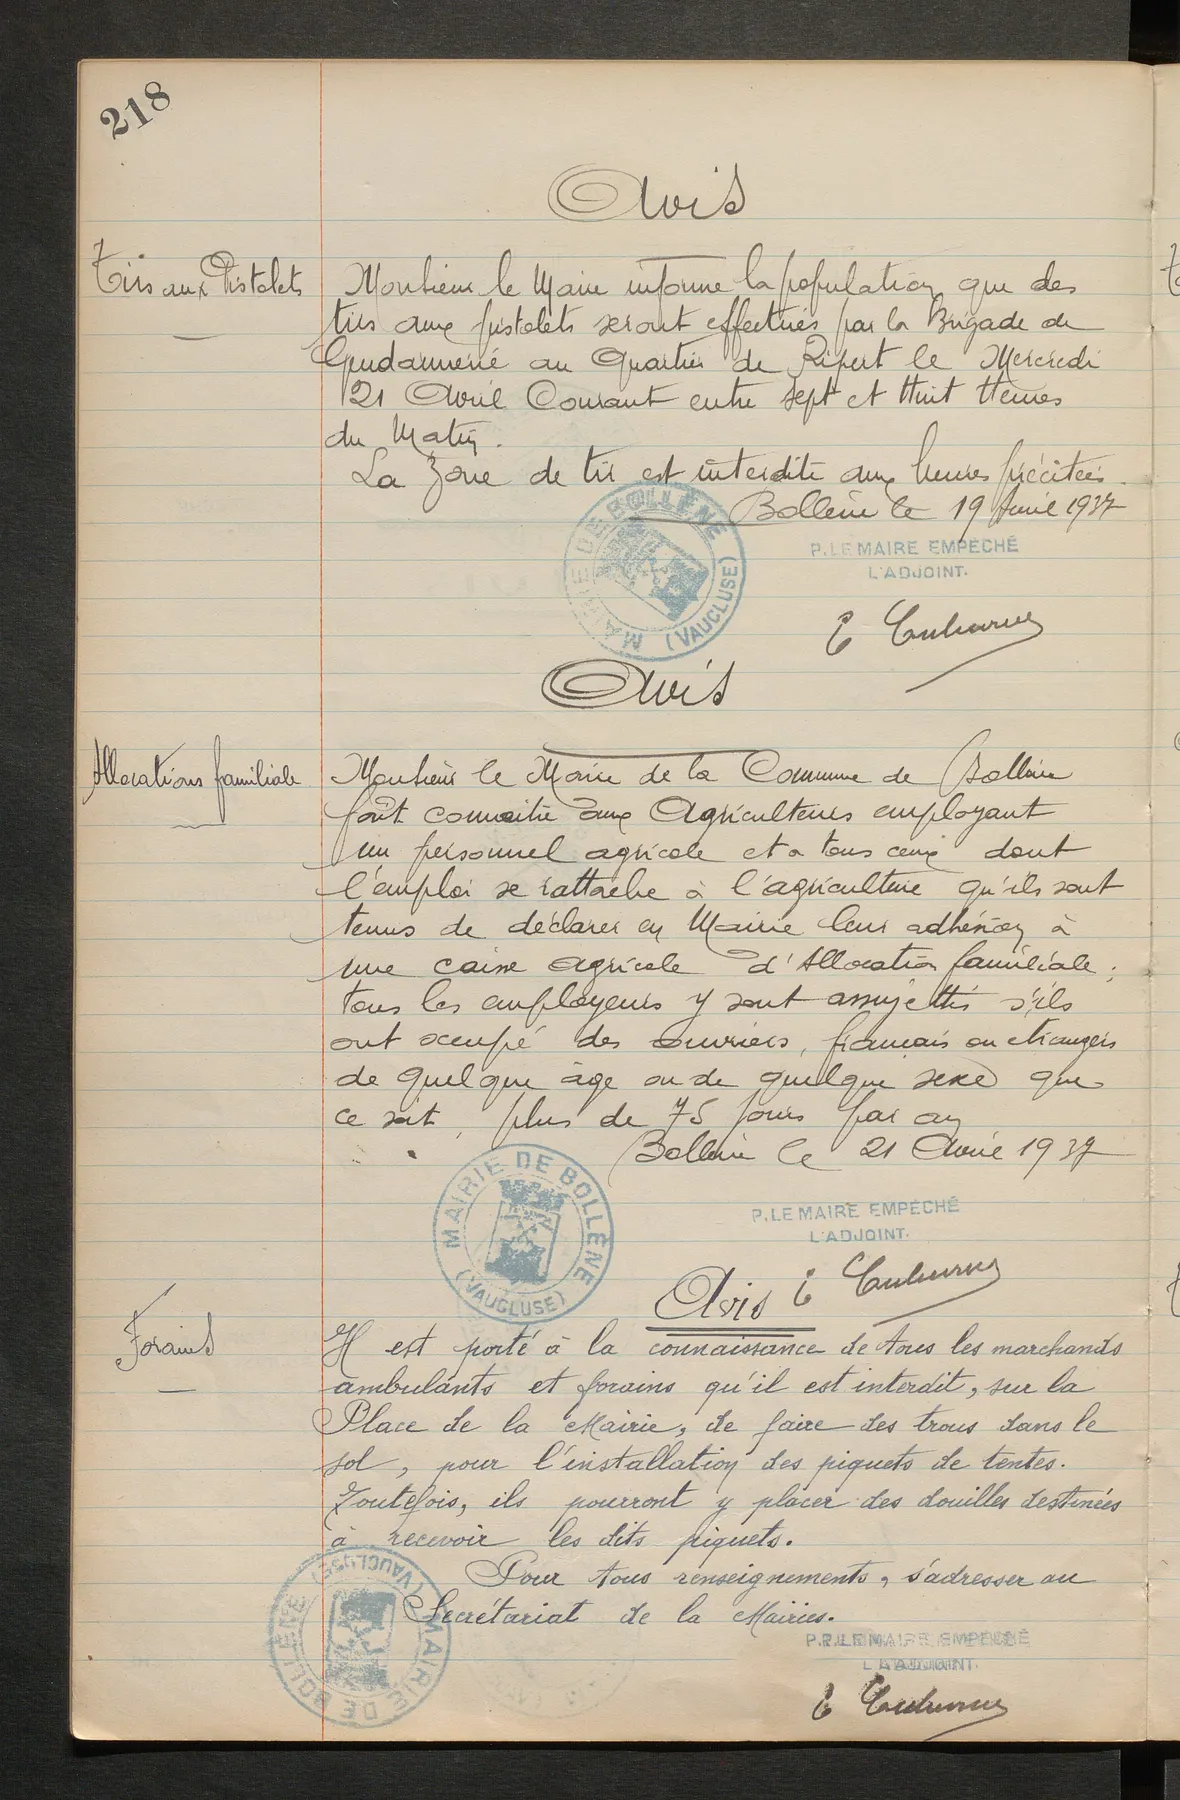 218
Avis
Tirs aux Pistolets
Monsieur le Maire informe la population que des
tirs aux pistolets seront effectués par la Brigade de
Gendarmerie au Quartier de Ripert le Mercredi
21 Avril Courant entre sept et Huit Heures
du Matin.
La Zone de tir est interdite aux heures précitées.
Bollène le 19 Avril 1937
MAIRIE DE BOLLÈNE (VAUCLUSE)
P. LE MAIRE EMPÊCHÉ
L'ADJOINT.
Avis
Allocations familiale
Monsieur le Maire de la Commune de Bollène
fait connaitre aux Agriculteurs employant
un personnel agricole et a tous ceux dont
l'emploi se rattache à l'agriculture qu'ils sont
tenus de déclarer en Mairie leur adhésion à
une caisse agricole d'Allocation familiale ;
tous les employeurs y sont assujettis s'ils
ont occupé des ouvriers, français ou étrangers
de quelque âge ou de quelque sexe que
ce soit, plus de 75 jours par an
Bollène le 21 Avril 1937
MAIRIE DE BOLLÈNE (VAUCLUSE)
P. LE MAIRE EMPÊCHÉ
L'ADJOINT.
Avis
Forains
Il est porté à la connaissance de tous les marchands
ambulants et forains qu'il est interdit, sur la
Place de la Mairie, de faire des trous dans le
sol, pour l'installation des piquets de tentes.
Toutefois, ils pourront y placer des douilles destinées
à recevoir les dits piquets.
Pour tous renseignements, s'adresser au
Secrétariat de la Mairies.
MAIRIE DE BOLLÈNE (VAUCLUSE)
P. LE MAIRE EMPÊCHÉ
L'ADJOINT.